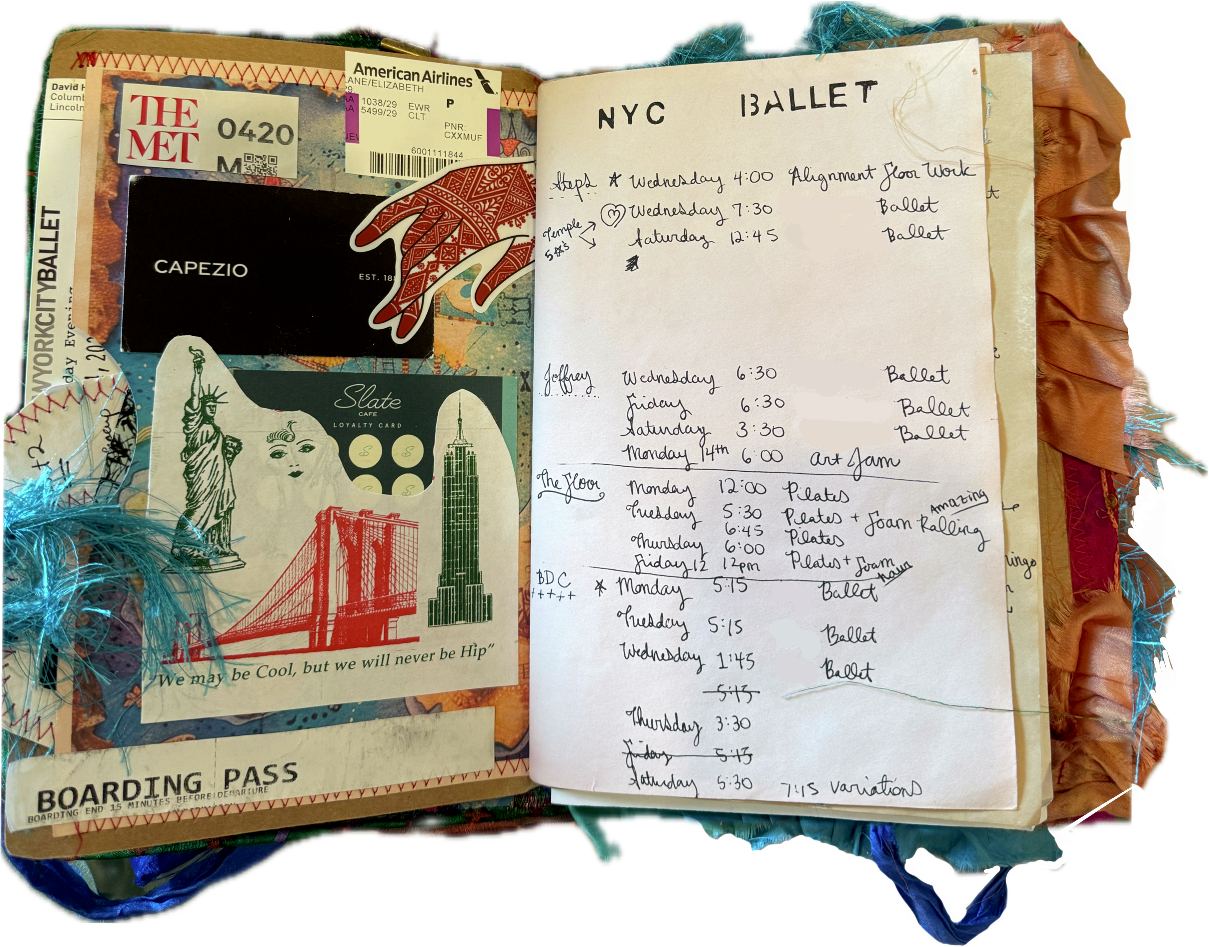 David H
Columb
Lincoln
WYORKCITYBALLET
day Evening
THE
MET
0420
M
American Airlines
ANE/ELIZABETH
1038/29 EWR P
5499/29 CLT
PNR:
CXXMUF
6001111844
CAPEZIO
EST. 18
Slate
CAFE
LOYALTY CARD
"We may be Cool, but we will never be Hip"
BOARDING PASS
BOARDING END 15 MINUTES BEFORE DEPARTURE
NYC BALLET
Steps * Wednesday 4:00 Alignment Floor Work
Temple Wednesday 7:30 Ballet
Saturday 12:45 Ballet
Joffrey Wednesday 6:30 Ballet
Friday 6:30 Ballet
Saturday 3:30 Ballet
Monday 14th 6:00 Art Jam
The Floor Monday 12:00 Pilates
Tuesday 5:30 Pilates + Foam Rolling Amazing
6:45 Pilates
Thursday 6:00 Pilates + Foam
Friday 12 12pm
BDC * Monday 5:15 Ballet
Tuesday 5:15 Ballet
Wednesday 1:45 Ballet
5:15
Thursday 3:30
Friday 5:15
Saturday 5:30 7:45 variations